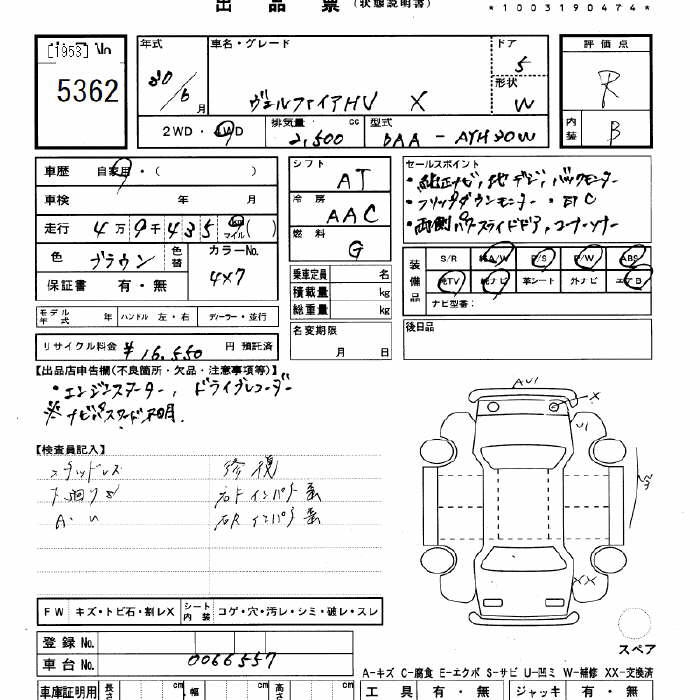 出品票 (状態説明書)
*1003190474*
[1953] No
5362
年式
30/6月
車名・グレード
ヴェルファイアHV X
ドア
5
形状
W
評価点
R
内装
B
2WD・4WD
排気量 cc
2,500
型式
DAA-AYH30W
車歴 自家用・( )
車検 年 月
走行 4万9千4359 km マイル( )
色 ブラウン 色替
カラーNo.
4X7
保証書 有・無
シフト
AT
冷房
AAC
燃料
G
乗車定員 名
積載量 kg
総重量 kg
名変期限
月 日
セールスポイント
・純正ナビ,地デジ,バックモニター
・フリップダウンモニター・ETC
・両側パワースライドドア,コーナーソナー
装備品
S/R 純A/W P/S P/W ABS
純TV 純ナビ 革シート 外ナビ エアB
ナビ型番:
後日品
モデル年式 年 ハンドル 左・右 ディーラー・並行
リサイクル料金 ¥16,550 円 預託済
【出品店申告欄(不良箇所・欠品・注意事項等)】
・エンジンスターター, ドライブレコーダー
※ナビパスワード不明.
【検査員記入】
スタッドレス
下廻りサ
A・U
修復
右Fインパネ系
右Rインパネ系
AU1
X
U1
XX
FW キズ・トビ石・割レX シート内装 コゲ・穴・汚レ・シミ・破レ・スレ
登録No.
車台No. 0066557
スペア
A-キズ C-腐食 E-エクボ S-サビ U-凹ミ W-補修 XX-交換済
車庫証明用 長さ cm 幅 cm 高さ cm
工具 有・無 ジャッキ 有・無